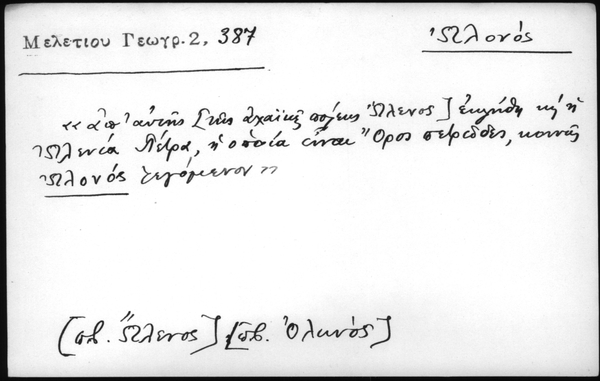 Μελετίου Γεωγρ. 2, 387
Ὠλονός
«ἀπ' αὐτῆς [τῆς ἀχαϊκῆς πόλεως Ὤλενος] ἐκλήθη ϗ ἡ
Ὠλενία Πέτρα, ἡ ὁποία εἶναι Ὄρος πετρῶδες, κοινῶς
Ὠλονός λεγόμενον»
[πβ. Ὤλενος] [πβ. Ὀλωνός]